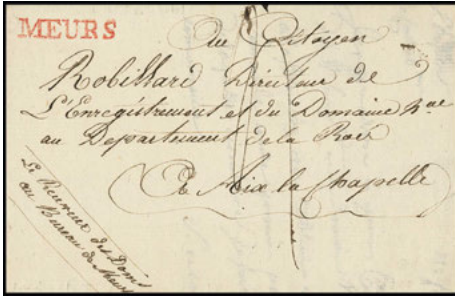 MEURS
Au Citoyen
Robillard Directeur de
L'Enregistrement et du Domaine N.ae
au Departement de la Roër
A Aix la Chapelle
Le Receveur des Dom.s
au Bureau de Meurs